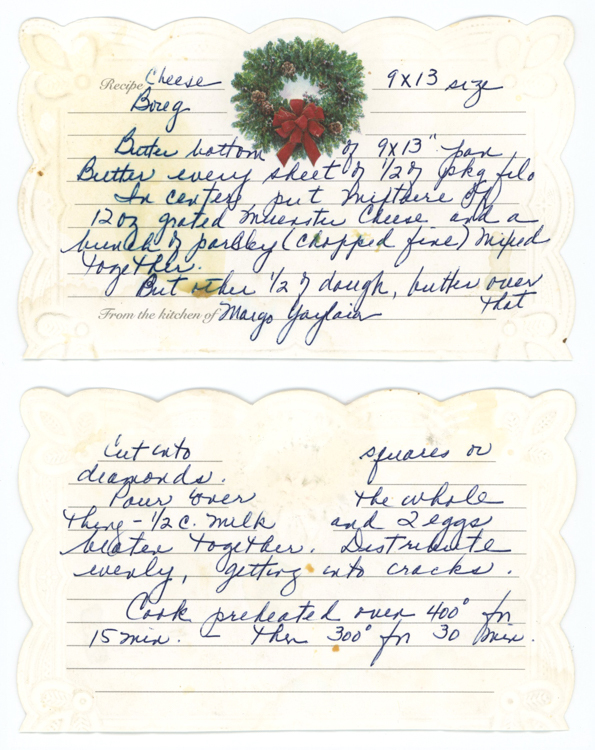 Recipe Cheese 9x13 size
Boreg
Butter bottom of 9x13" pan
Butter every sheet of 1/2 of pkg filo
In center, put mixture of
12oz grated Muenster Cheese and a
bunch of parsley (chopped fine) mixed
together.
Put other 1/2 of dough, butter over
that
From the kitchen of Margo
Cut into squares or
diamonds.
Pour over the whole
thing - 1/2 c. milk and 2 eggs
beaten together. Distribute
evenly, getting into cracks.
Cook preheated oven 400° for
15 min. - then 300° for 30 min.